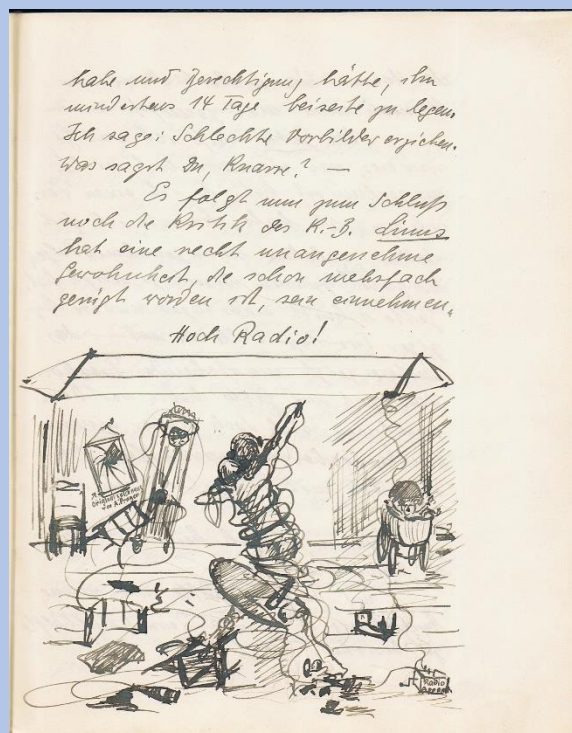 habe und Berechtigung hätte, ihn
mindestens 14 Tage beiseite zu legen.
Ich sage: Schlechte Vorbilder erziehen.
Was sagst Du, Knarre? —
Es folgt nun zum Schluß
noch die Kritik des K.-B. Linus
hat eine recht unangenehme
Gewohnheit, die schon mehrfach
gerügt worden ist, sein einnehmen.
Hoch Radio!
Original
von A.
Radio